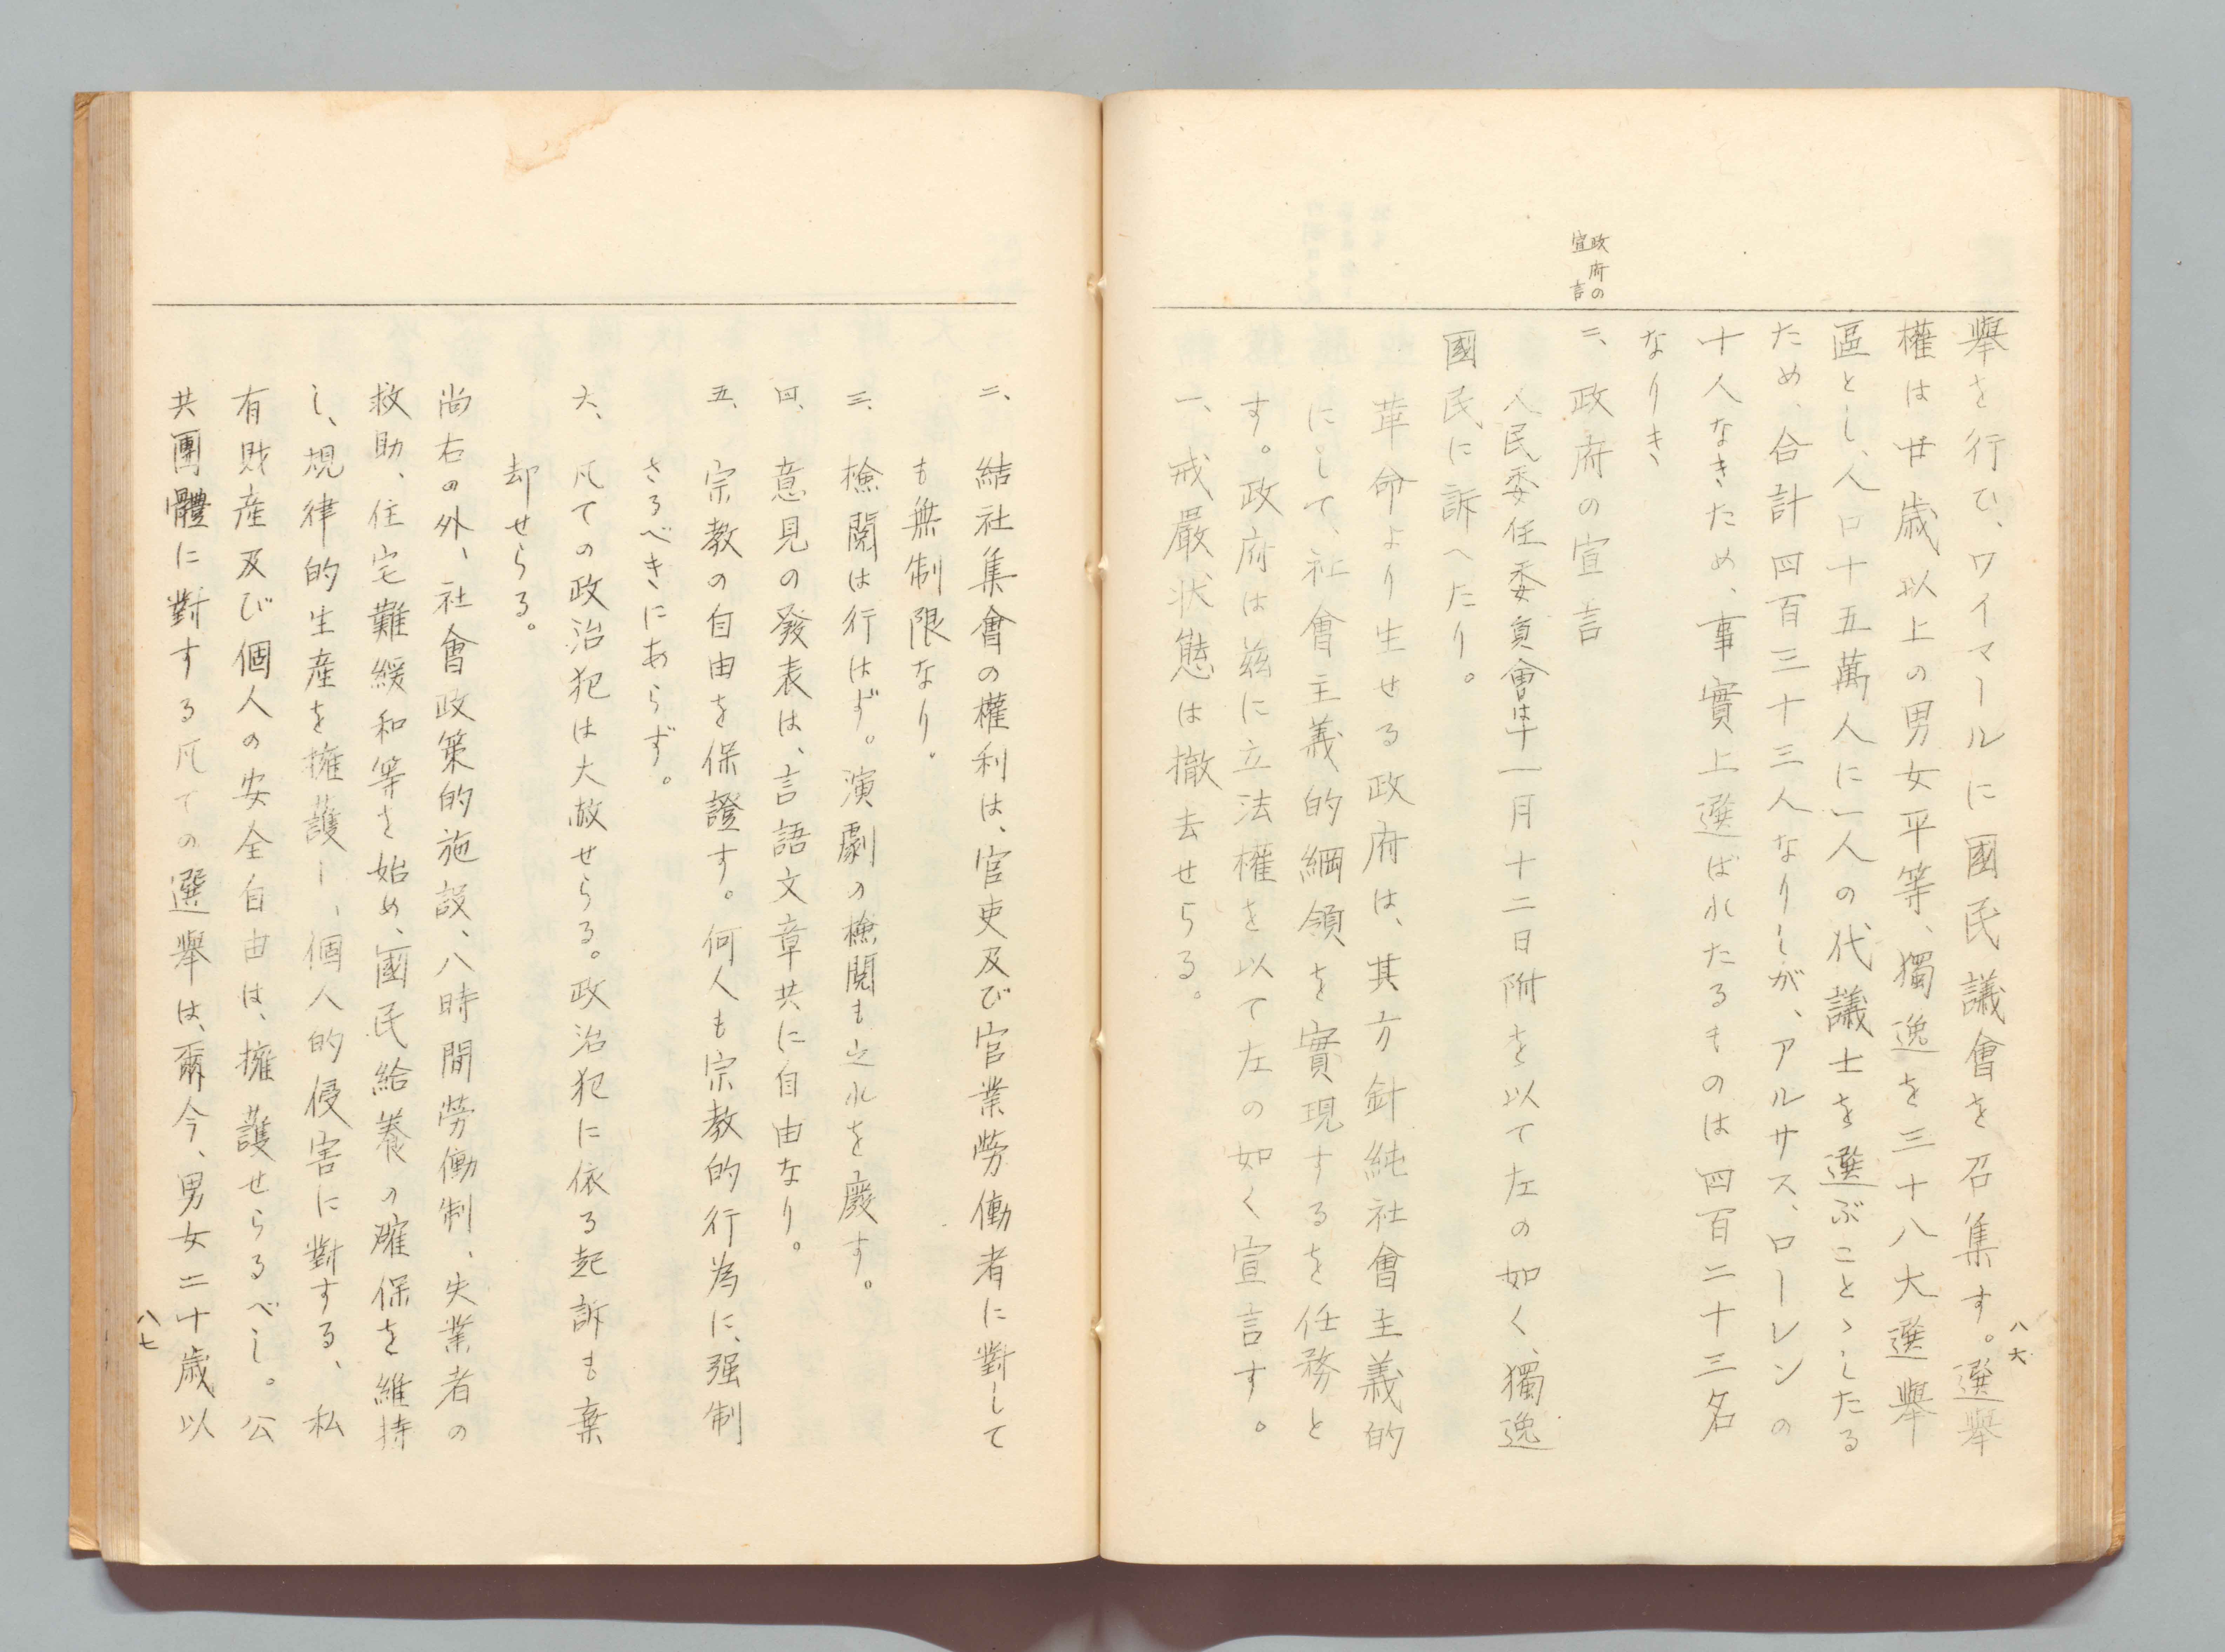 八六
擧を行ひ、ワイマールに國民議會を召集す。選擧
權は廿歳以上の男女平等、獨逸を三十八大選擧
區とし、人口十五萬人に一人の代議士を選ぶことゝしたる
ため、合計四百三十三人なりしが、アルサス、ローレンの
十人なきため、事實上選ばれたるものは四百二十三名
なりき
政府の
宣言
二、政府の宣言
人民委任委員會は十一月十二日附を以て左の如く、獨逸
國民に訴へたり。
革命より生せる政府は、其方針純社會主義的
にして、社會主義的綱領を實現するを任務と
す。政府は茲に立法權を以て左の如く宣言す。
一、戒嚴状態は撤去せらる。
二、結社集會の權利は、官吏及び官業勞働者に對して
も無制限なり。
三、檢閲は行はず。演劇の檢閲も之れを廢す。
四、意見の發表は、言語文章共に自由なり。
五、宗教の自由を保證す。何人も宗教的行為に、强制
さるべきにあらず。
六、凡ての政治犯は大赦せらる。政治犯に依る起訴も棄
却せらる。
尚右の外、社會政策的施設、八時間勞働制、失業者の
救助、住宅難緩和等を始め、國民給養の確保を維持
し、規律的生産を擁護し、個人的侵害に對する、私
有財産及び個人の安全自由は、擁護せらるべし。公
共團體に對する凡ての選擧は、爾今、男女二十歳以
八七